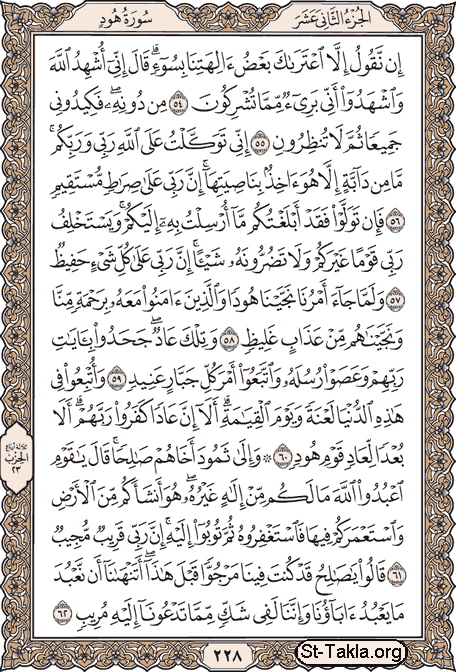 سُورَةُ هُودٍ
الجُزْءُ الثَّانِي عَشَرَ
إِن نَّقُولُ إِلَّا ٱعْتَرَىٰكَ بَعْضُ ءَالِهَتِنَا بِسُوٓءٍ ۗ قَالَ إِنِّىٓ أُشْهِدُ ٱللَّهَ
وَٱشْهَدُوٓا۟ أَنِّى بَرِىٓءٌ مِّمَّا تُشْرِكُونَ ٥٤ مِن دُونِهِۦ ۖ فَكِيدُونِى
جَمِيعًا ثُمَّ لَا تُنظِرُونِ ٥٥ إِنِّى تَوَكَّلْتُ عَلَى ٱللَّهِ رَبِّى وَرَبِّكُم ۚ
مَّا مِن دَآبَّةٍ إِلَّا هُوَ ءَاخِذٌۢ بِنَاصِيَتِهَآ ۚ إِنَّ رَبِّى عَلَىٰ صِرَٰطٍ مُّسْتَقِيمٍ
٥٦ فَإِن تَوَلَّوْا۟ فَقَدْ أَبْلَغْتُكُم مَّآ أُرْسِلْتُ بِهِۦٓ إِلَيْكُمْ ۚ وَيَسْتَخْلِفُ
رَبِّى قَوْمًا غَيْرَكُمْ وَلَا تَضُرُّونَهُۥ شَيْـًٔا ۚ إِنَّ رَبِّى عَلَىٰ كُلِّ شَىْءٍ حَفِيظٌ
٥٧ وَلَمَّا جَآءَ أَمْرُنَا نَجَّيْنَا هُودًا وَٱلَّذِينَ ءَامَنُوا۟ مَعَهُۥ بِرَحْمَةٍ مِّنَّا
وَنَجَّيْنَٰهُم مِّنْ عَذَابٍ غَلِيظٍ ٥٨ وَتِلْكَ عَادٌ ۖ جَحَدُوا۟ بِـَٔايَٰتِ
رَبِّهِمْ وَعَصَوْا۟ رُسُلَهُۥ وَٱتَّبَعُوٓا۟ أَمْرَ كُلِّ جَبَّارٍ عَنِيدٍ ٥٩ وَأُتْبِعُوا۟ فِى
هَٰذِهِ ٱلدُّنْيَا لَعْنَةً وَيَوْمَ ٱلْقِيَٰمَةِ ۗ أَلَآ إِنَّ عَادًا كَفَرُوا۟ رَبَّهُمْ ۗ أَلَا
بُعْدًا لِّعَادٍ قَوْمِ هُودٍ ٦٠ ۞ وَإِلَىٰ ثَمُودَ أَخَاهُمْ صَٰلِحًا ۚ قَالَ يَٰقَوْمِ
ٱعْبُدُوا۟ ٱللَّهَ مَا لَكُم مِّنْ إِلَٰهٍ غَيْرُهُۥ ۖ هُوَ أَنشَأَكُم مِّنَ ٱلْأَرْضِ
وَٱسْتَعْمَرَكُمْ فِيهَا فَٱسْتَغْفِرُوهُ ثُمَّ تُوبُوٓا۟ إِلَيْهِ ۚ إِنَّ رَبِّى قَرِيبٌ مُّجِيبٌ
٦١ قَالُوا۟ يَٰصَٰلِحُ قَدْ كُنتَ فِينَا مَرْجُوًّا قَبْلَ هَٰذَآ ۖ أَتَنْهَىٰنَآ أَن نَّعْبُدَ
مَا يَعْبُدُ ءَابَآؤُنَا وَإِنَّنَا لَفِى شَكٍّ مِّمَّا تَدْعُونَآ إِلَيْهِ مُرِيبٍ ٦٢
الحِزْب
٢٣
٢٢٨
St-Takla.org